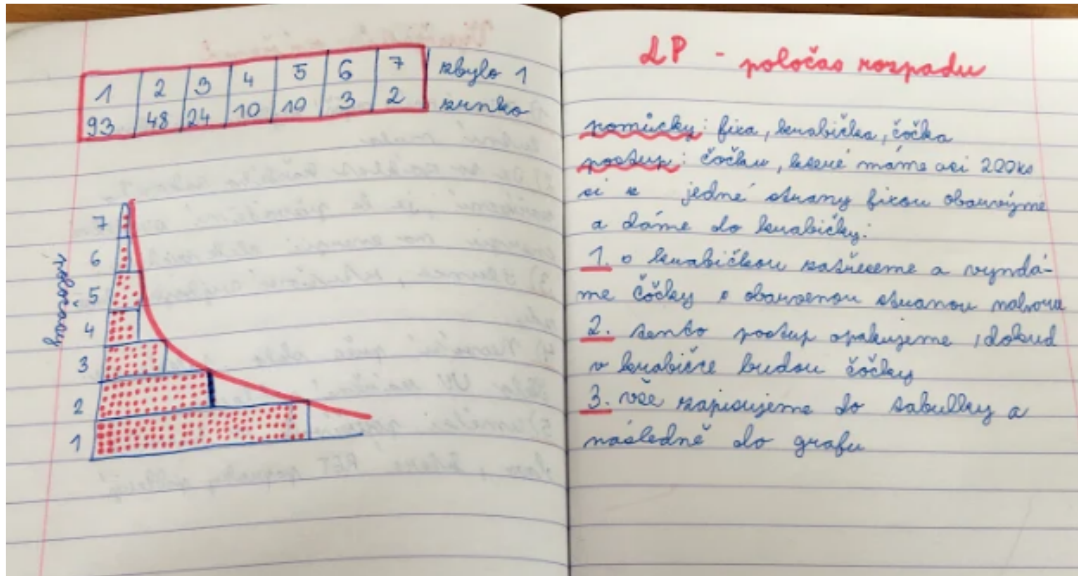 1 2 3 4 5 6 7 zbylo 1
93 48 24 10 10 3 2 zrnko
poločasy
7
6
5
4
3
2
1
LP - poločas rozpadu
pomůcky: fixa, krabička, čočka
postup: čočku, které máme asi 200ks
si z jedné strany fixou obarvíme
a dáme do krabičky:
1. s krabičkou zatřeseme a vyndá-
me čočky s obarvenou stranou nahoru
2. tento postup opakujeme, dokud
v krabičce budou čočky
3. vše zapisujeme do tabulky a
následně do grafu